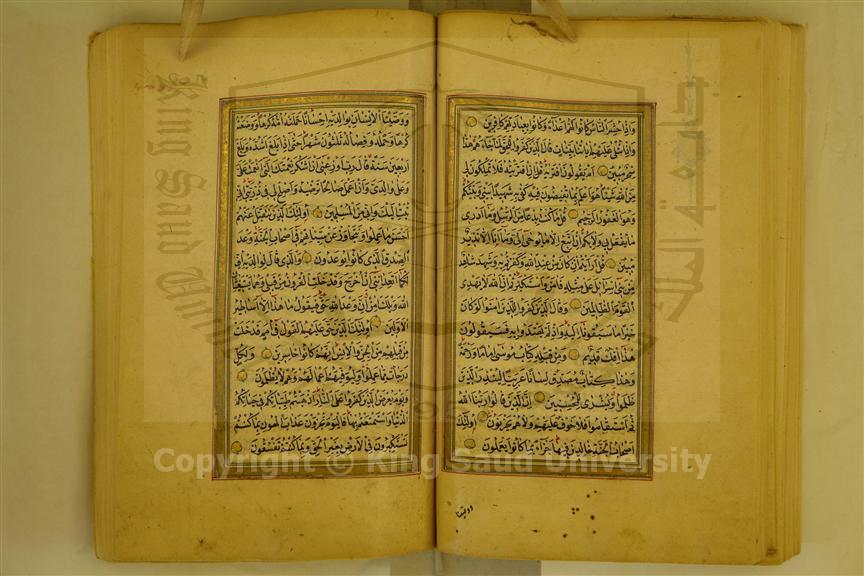 واذا حشر الناس كانوا لهم اعداء وكانوا بعبادتهم كافرين
واذا تتلى عليهم اياتنا بينات قال الذين كفروا للحق لما جاءهم هذا
سحر مبين ام يقولون افتريه قل ان افتريته فلا تملكون لي
من الله شيئا هو اعلم بما تفيضون فيه كفى به شهيدا بيني وبينكم
وهو الغفور الرحيم قل ما كنت بدعا من الرسل وما ادري
ما يفعل بي ولا بكم ان اتبع الا ما يوحى الي وما انا الا نذير
مبين قل ارايتم ان كان من عند الله وكفرتم به وشهد شاهد
من بني اسرائيل على مثله فامن واستكبرتم ان الله لا يهدي
القوم الظالمين وقال الذين كفروا للذين امنوا لو كان
خيرا ما سبقونا اليه واذ لم يهتدوا به فسيقولون
هذا افك قديم ومن قبله كتاب موسى اماما ورحمة
وهذا كتاب مصدق لسانا عربيا لينذر الذين
ظلموا وبشرى للمحسنين ان الذين قالوا ربنا الله
ثم استقاموا فلا خوف عليهم ولا هم يحزنون اولئك
اصحاب الجنة خالدين فيها جزاء بما كانوا يعملون
ووصينا
ووصينا الانسان بوالديه احسانا حملته امه كرها ووضعته
كرها وحمله وفصاله ثلثون شهرا حتى اذا بلغ اشده وبلغ
اربعين سنة قال رب اوزعني ان اشكر نعمتك التي انعمت علي
وعلى والدي وان اعمل صالحا ترضيه واصلح لي في ذريتي اني
تبت اليك واني من المسلمين اولئك الذين نتقبل عنهم
احسن ما عملوا ونتجاوز عن سيئاتهم في اصحاب الجنة وعد
الصدق الذي كانوا يوعدون والذي قال لوالديه اف
لكما اتعدانني ان اخرج وقد خلت القرون من قبلي وهما يستغيثان
الله ويلك امن ان وعد الله حق فيقول ما هذا الا اساطير
الاولين اولئك الذين حق عليهم القول في امم قد خلت
من قبلهم من الجن والانس انهم كانوا خاسرين ولكل
درجات مما عملوا وليوفيهم اعمالهم وهم لا يظلمون
ويوم يعرض الذين كفروا على النار اذهبتم طيباتكم في حياتكم
الدنيا واستمتعتم بها فاليوم تجزون عذاب الهون بما كنتم
تستكبرون في الارض بغير الحق وبما كنتم تفسقون
Copyright © King Saud University
King Saud University
جامعة الملك